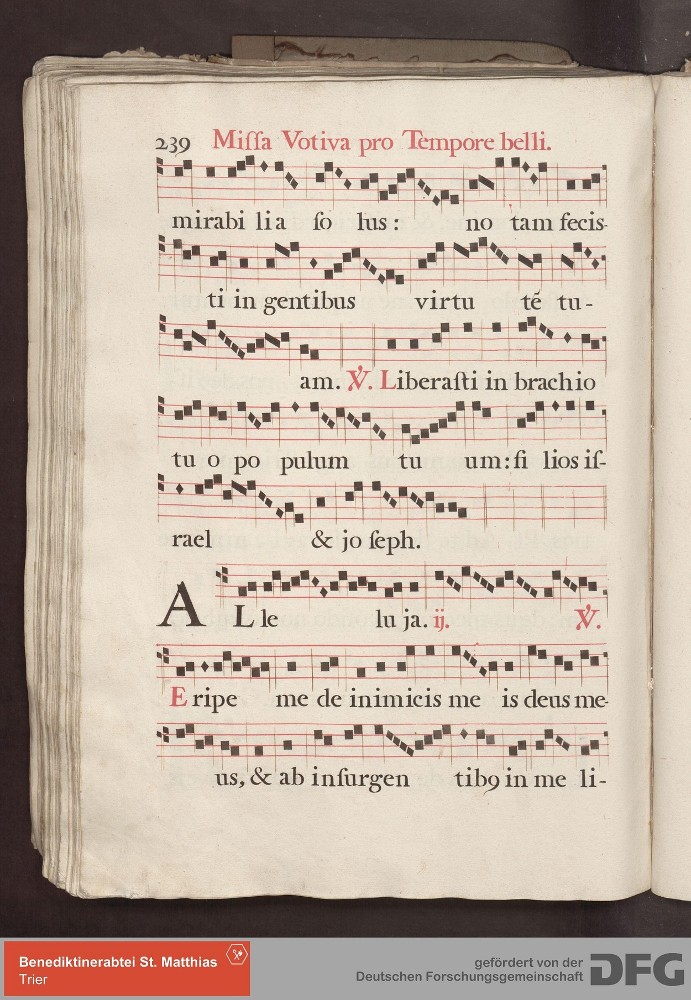 239 Miſſa Votiva pro Tempore belli.
mirabi lia ſo lus: no tam fecis-
ti in gentibus virtu té tu-
am. ℣. Liberaſti in brachio
tu o po pulum tu um: fi lios iſ-
rael & jo ſeph.
AL le lu ja. ij. ℣.
Eripe me de inimicis me is deus me-
us, & ab inſurgen tib9 in me li-
Benediktinerabtei St. Matthias
Trier
gefördert von der
Deutschen Forschungsgemeinschaft DFG